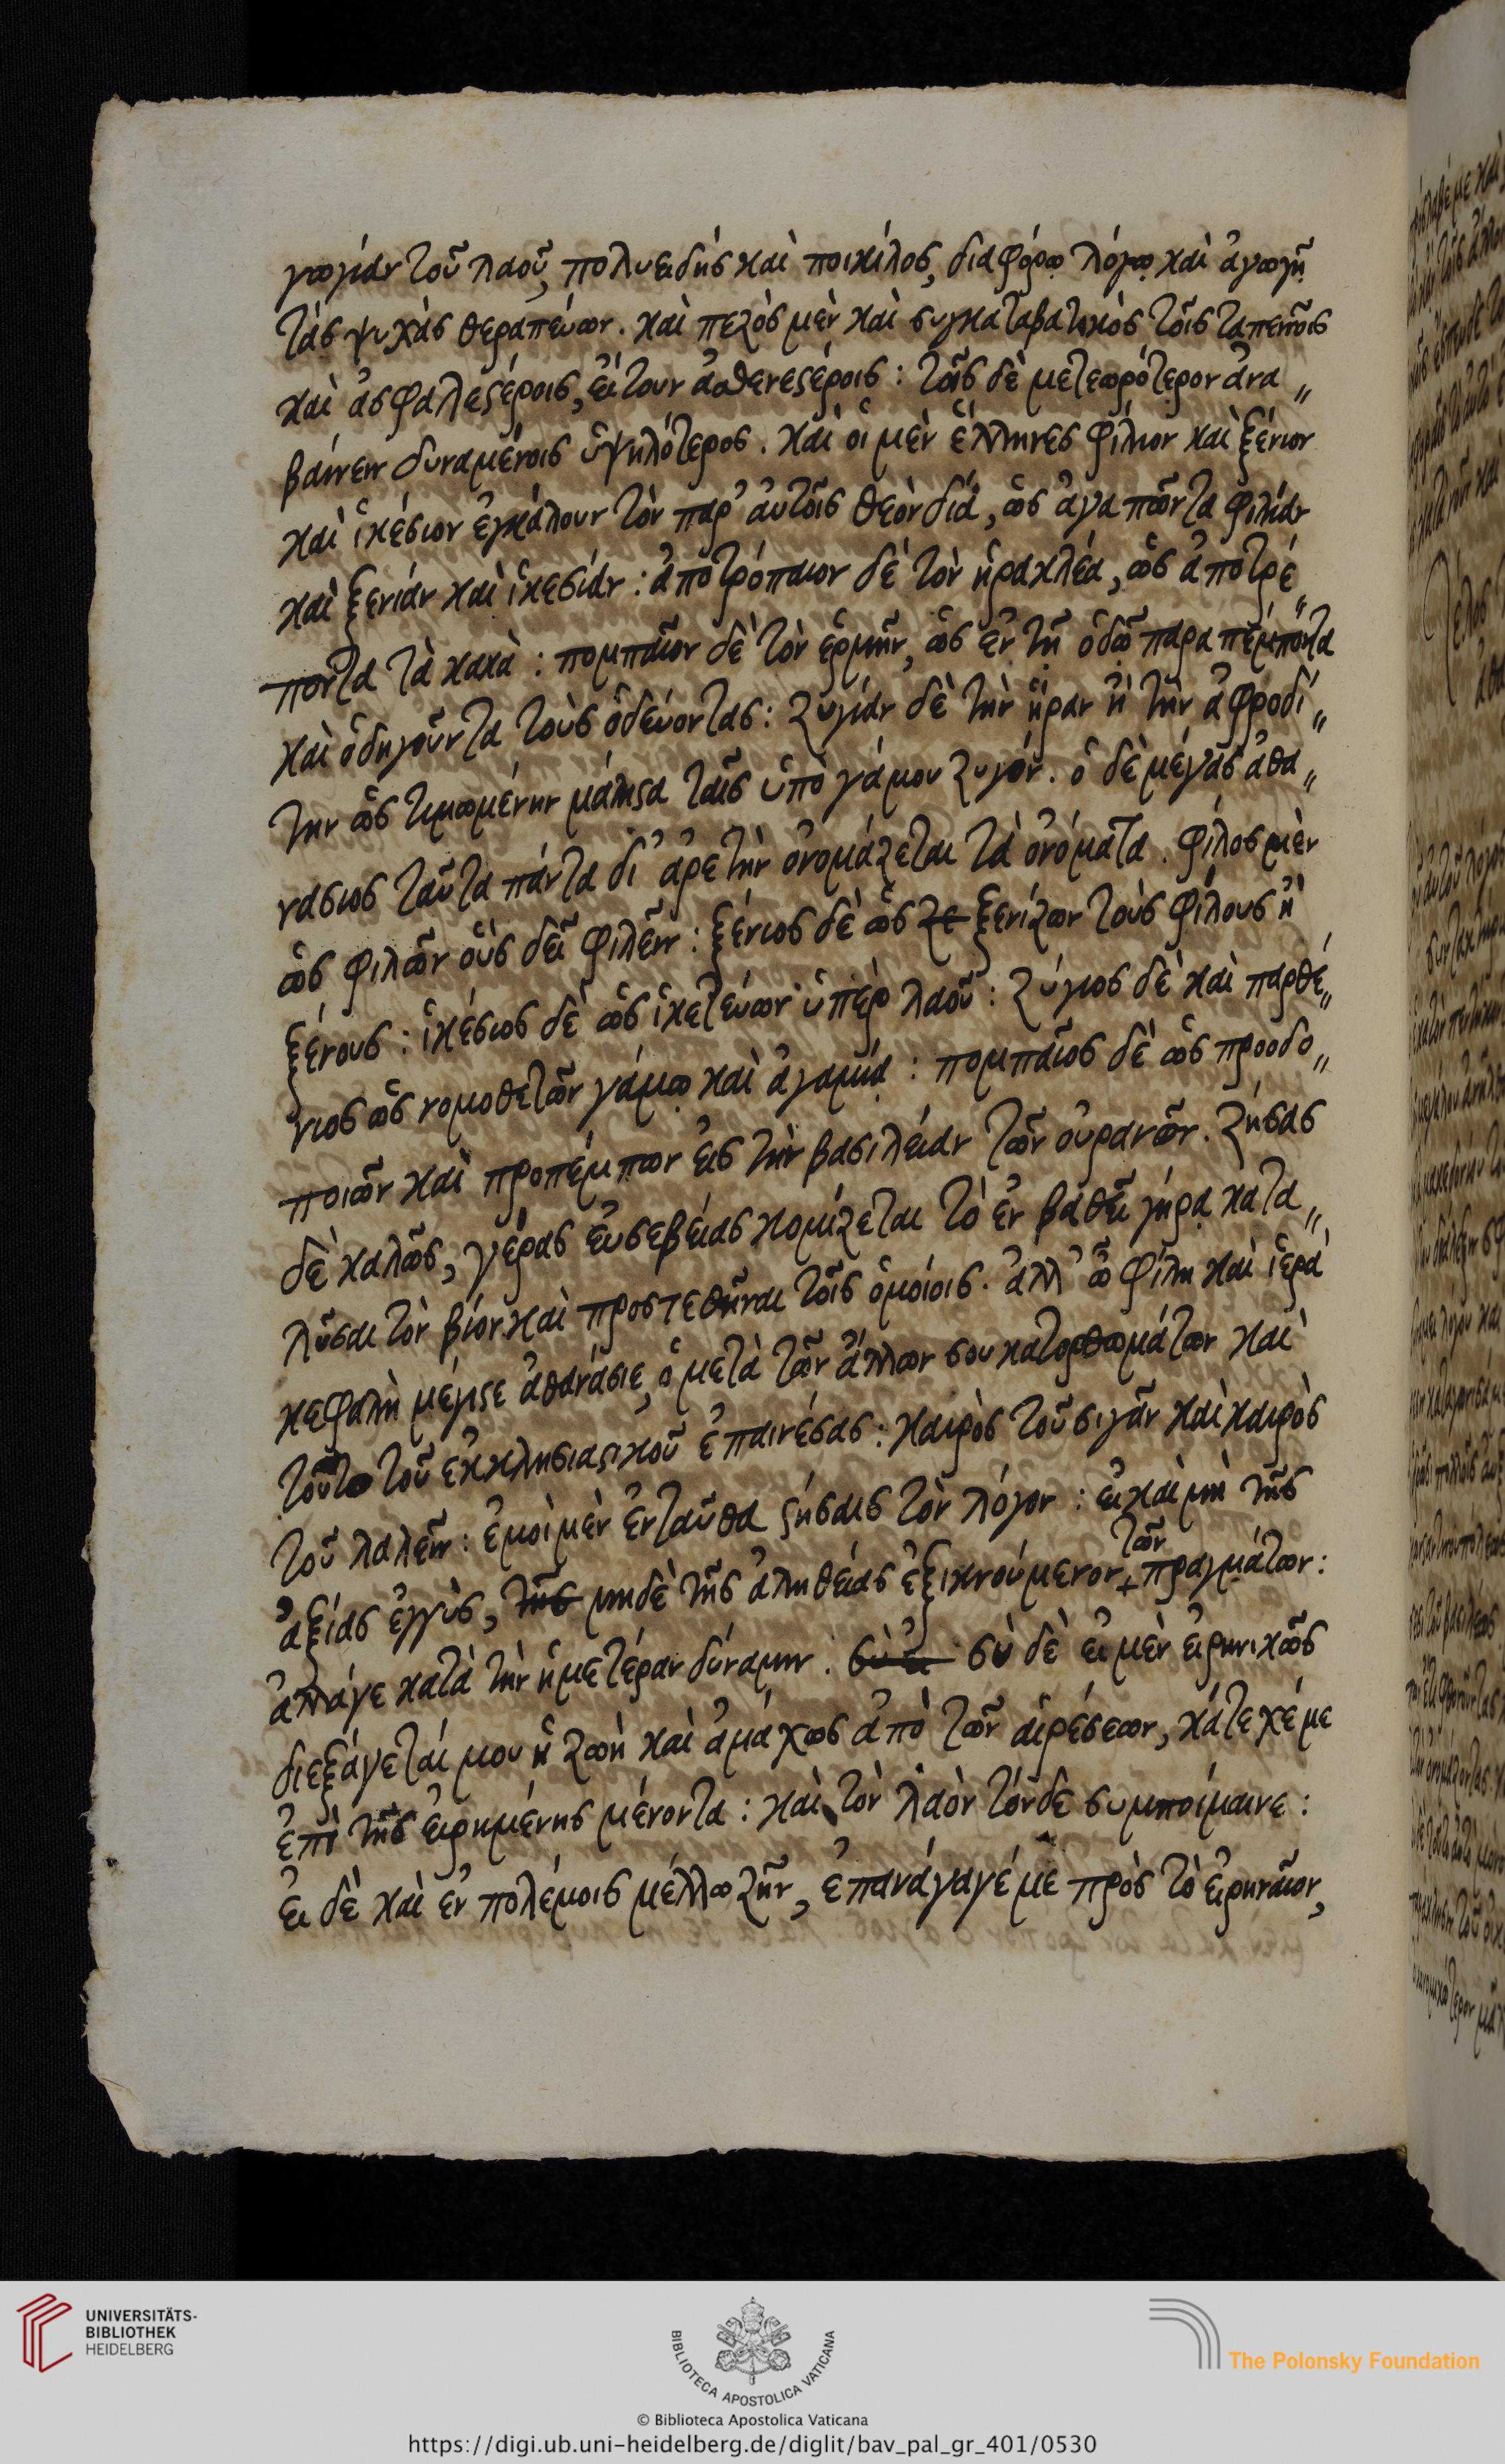 γωγίαν τοῦ λαοῦ, πολυειδὴς καὶ ποικίλος, διαφόρῳ λόγῳ καὶ ἀγωγῇ
τὰς ψυχὰς θεραπεύων. καὶ πεζὸς μὲν καὶ συγκαταβατικὸς τοῖς ταπεινοῖς
καὶ ἀσφαλεστέροις, εἴτουν ἀσθενεστέροις: τοῖς δὲ μετεωρότερον ἀνα„
βαίνειν δυναμένοις ὑψηλότερος. καὶ οἱ μὲν ἕλληνες φίλιον καὶ ξένιον
καὶ ἱκέσιον ἐγκάλουν τὸν παρ' ἀυτοῖς θεὸν δία, ὡς ἀγαπῶντα φιλίαν
καὶ ξενίαν καὶ ἱκεσίαν: ἀποτρόπαιον δὲ τὸν ἡρακλέα, ὡς ἀποτρέ„
ποντα τὰ κακὰ: πομπαῖον δὲ τὸν ἑρμῆν, ὡς ἐν τῇ ὁδῷ παραπέμποντα
καὶ ὁδηγοῦντα τοὺς ὁδεύοντας: ζυγίαν δὲ τὴν ἥραν ἢ τὴν ἀφροδί„
την ὡς τιμωμένην μάλιστα ταῖς ὑπὸ γάμου ζυγόν. ὁ δὲ μέγας ἀθα„
νάσιος ταῦτα πάντα δι' ἀρετὴν ὀνομάζεται τὰ ὀνόματα. φίλος μὲν
ὡς φιλῶν οὓς δεῖ φιλεῖν: ξένιος δὲ ὡς ζε ξενίζων τοὺς φίλους ἢ
ξένους: ἱκέσιος δὲ ὡς ἱκετεύων ὑπὲρ λαοῦ: ζύγιος δὲ καὶ παρθέ„
νιος ὡς νομοθετῶν γάμῳ καὶ ἀγαμίᾳ: πομπαῖος δὲ ὡς προοδο„
ποιῶν καὶ προπέμπων εἰς τὴν βασιλείαν τῶν οὐρανῶν. ζήσας
δὲ καλῶς, γέρας ἐυσεβείας κομίζεται τὸ ἐν βαθεῖ γήρᾳ κατα„
λῦσαι τὸν βίον καὶ προστεθῆναι τοῖς ὁμοίοις. ἀλλ' ὦ φίλη καὶ ἱερὰ
κεφαλὴ μέγιστε ἀθανάσιε, ὁ μετὰ τῶν ἄλλων σου κατορθωμάτων καὶ
τοῦτο τοῦ ἐκκλησιαστικοῦ ἐπαινέσας: καιρὸς τοῦ σιγᾶν καὶ καιρὸς
τοῦ λαλεῖν: ἐμοὶ μὲν ἐνταῦθα στήσαις τὸν λόγον: εἰ καὶ μὴ τῆς
ἀξίας ἐγγὺς, τῆς μηδὲ τῆς ἀληθείας ἐξικνούμενον + τῶν πραγμάτων:
ἀλλάγε κατὰ τὴν ἡμετέραν δύναμιν. σὺ εἰ σὺ δὲ εἰ μὲν εἰρηνικῶς
διεξάγεταί μου ἡ ζωὴ καὶ ἀμάχως ἀπὸ τῶν αἱρέσεων, κάτεχέ με
ἐπὶ τῆς εἰρημένης μένοντα: καὶ τὸν λαὸν τόνδε συμποίμαινε:
εἰ δὲ καὶ ἐν πολέμοις μέλλω ζῆν, ἐπανάγαγέ με πρὸς τὸ εἰρηναῖον,
UNIVERSITÄTS-
BIBLIOTHEK
HEIDELBERG
BIBLIOTECA APOSTOLICA VATICANA
The Polonsky Foundation
© Biblioteca Apostolica Vaticana
https://digi.ub.uni-heidelberg.de/diglit/bav_pal_gr_401/0530